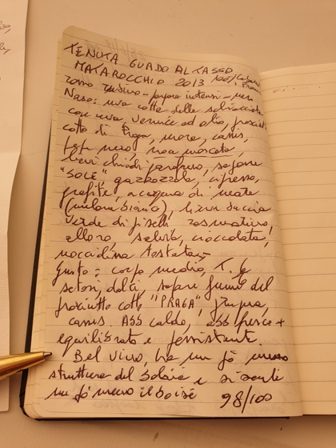 TENUTA GUADO AL TASSO
MATAROCCHIO 2013 100%
rosso rubino - porpora intenso -
Naso: uva cotta della schiacciata
con uva, vernice ad olio, prosciutto
cotto di Praga, mora, cassis,
pepe nero, noce moscata
lievi chiodi garofano, sapone
"SOLE" gazzozzola, cipresso,
grafite, acqua di
(melone bianco), lieve buccia
verde di piselli rosmarino,
alloro, salvia, cioccolata,
nocciolina tostata.
Gusto: corpo medio, T.
setosi, dolci, sapore fumé del
prosciutto cotto "PRAGA", prugna,
cassis. Abb caldo, abb fresco +
equilibrato e persistente.
Bel vino, ha un pò meno
struttura del Solaia e si sente
un pò meno il boisé 98/100